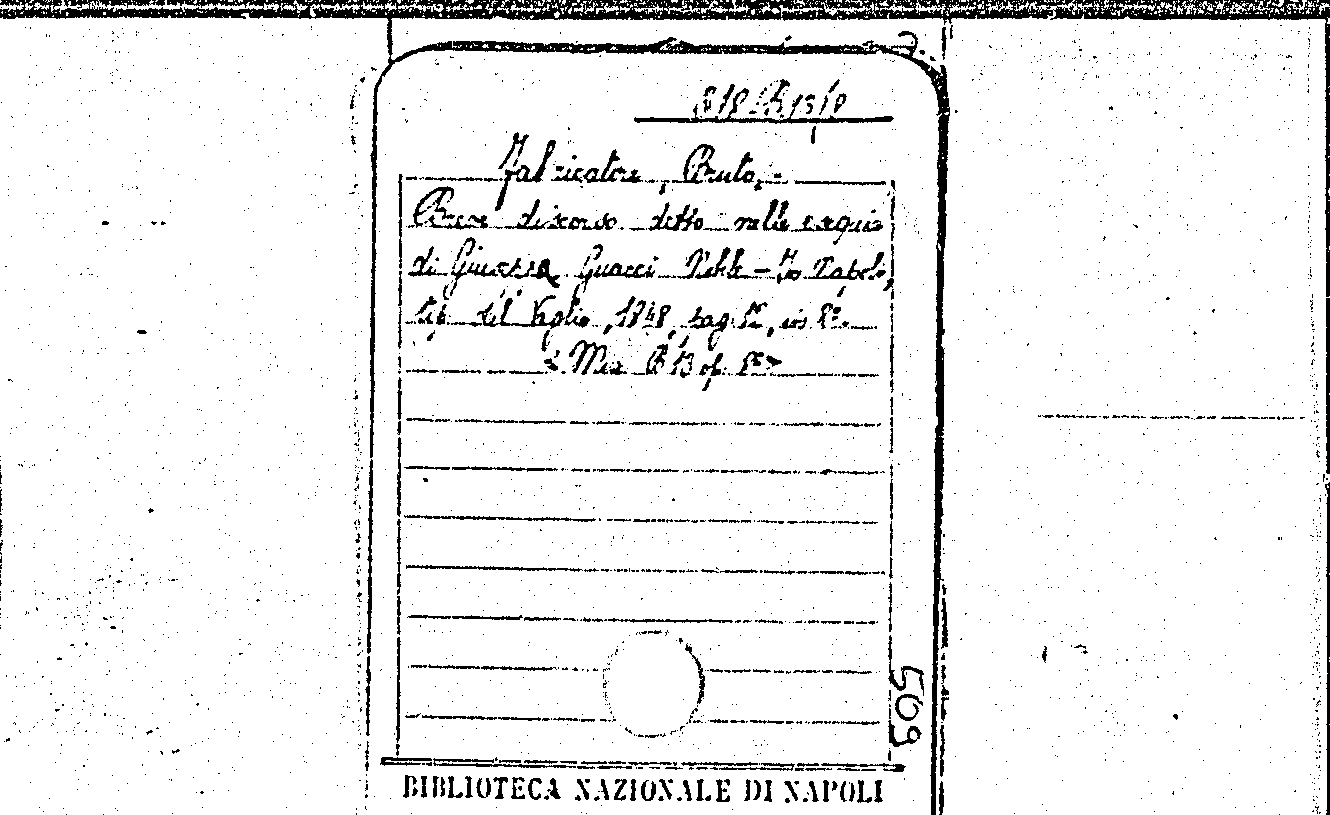 Fabricatore, Bruto,-
Breve discorso detto nelle esequie
di Giuseppa Guacci Nobile - In Napoli,
tip. del Vaglio, 1848, pag. in 8°.
< Misc. B 13
509
BIBLIOTECA NAZIONALE DI NAPOLI